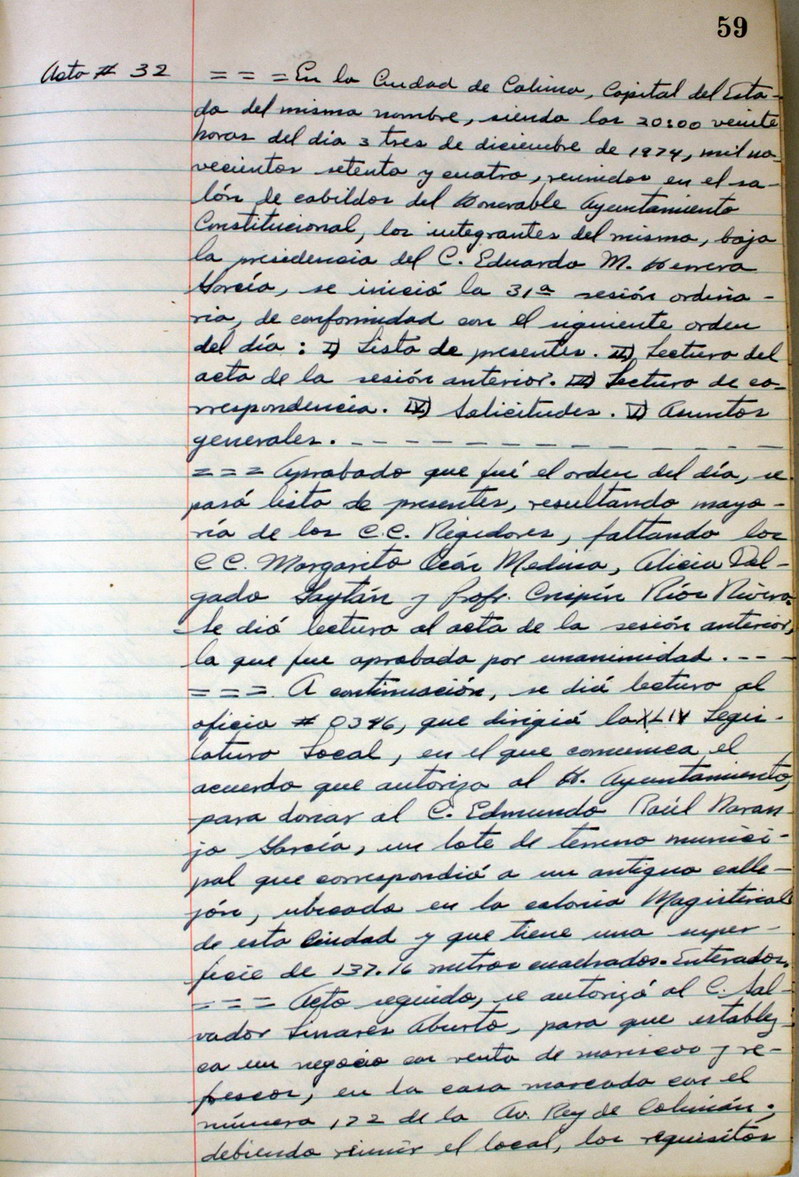 59
Acta # 32 = = = En la Ciudad de Colima, Capital del Esta-
do del mismo nombre, siendo las 20:00 veinte
horas del día 3 tres de diciembre de 1974, mil no-
vecientos setenta y cuatro, reunidos en el sa-
lón de cabildos del Honorable Ayuntamiento
Constitucional, los integrantes del mismo, bajo
la presidencia del C. Eduardo M. Herrera
García, se inició la 31a sesión ordina-
ria, de conformidad con el siguiente orden
del día: I) Lista de presentes. II) Lectura del
acta de la sesión anterior. III) Lectura de co-
rrespondencia. IV) Solicitudes. V) Asuntos
generales. - - - - - - - - - - - -
= = = Aprobado que fué el orden del día, se
pasó lista de presentes, resultando mayo-
ría de los C.C. Regidores, faltando los
CC. Margarito Ocón Medina, Alicia Del-
gado Gaytán y Profr. Crispín Ríos Rivera.
Se dió lectura al acta de la sesión anterior,
la que fue aprobada por unanimidad. - - -
= = = A continuación, se dió lectura al
oficio # 0386, que dirigió la XLIV Legis-
latura Local, en el que comunica el
acuerdo que autoriza al H. Ayuntamiento,
para donar al C. Edmundo Raúl Naran-
jo García, un lote de terreno munici-
pal que correspondió a un antiguo calle-
jón, ubicado en la colonia Magisterial
de esta Ciudad y que tiene una super-
ficie de 137.16 metros cuadrados. Enterados.
= = = Acto seguido, se autorizó al C. Sal-
vador Linares Aburto, para que establez-
ca un negocio con venta de mariscos y re-
frescos, en la casa marcada con el
número 122 de la Av. Rey de Colimán;
debiendo reunir el local, los requisitos